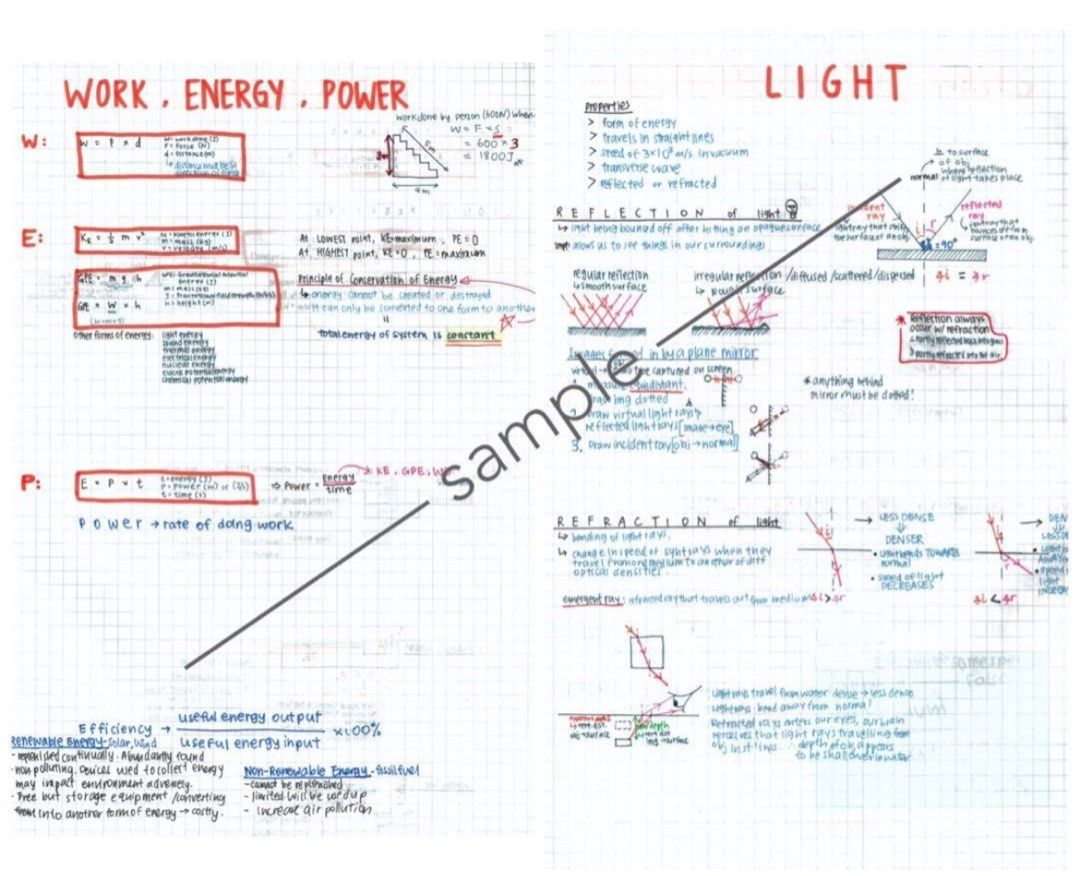 WORK . ENERGY . POWER
W:
W = F × d
W = work done (J)
F = force (N)
d = distance (m)
work done by person (600N) when
W = F × S
= 600 × 3
= 1800J
3m
5m
4m
E:
KE = ½ m v²
KE = kinetic energy (J)
m = mass (kg)
v = velocity (m/s)
At LOWEST point, KE = maximum, PE = 0
At HIGHEST point, KE = 0, PE = maximum
GPE = m g h
GPE: Gravitational Potential
energy (J)
m = mass (kg)
h = height (m)
GPE = W × h
(W=mg)
Principle of Conservation of Energy
↳ energy cannot be created or destroyed
it can only be converted to one form to another
total energy of system is constant
other forms of energy:
light energy
sound energy
thermal energy
electrical energy
nuclear energy
elastic potential energy
chemical potential energy
P:
E = P × t
E = energy (J)
P = power (W) or (J/s)
t = time (s)
⇒ Power = Energy
time
→ KE, GPE, W
Power → rate of doing work
sample
Efficiency → useful energy output
useful energy input
×100%
Renewable Energy - Solar, Wind
- replenished continually. Abundantly found
- non polluting. Devices used to collect energy
may impact environment adversely.
- Free but storage equipment /converting
them into another form of energy → costly.
Non-Renewable Energy - fossil fuel
- cannot be replenished
- limited will be used up
- increase air pollution
LIGHT
Properties
> form of energy
> travels in straight lines
> speed of 3×10⁸ m/s in vacuum
> transverse wave
> reflected or refracted
REFLECTION of light
↳ light being bounced off after hitting an opaque surface
allows us to see things in our surroundings
⊥ to surface
of obj
where reflection
normal of light takes place
incident
ray
reflected
ray
= 90°
∠i = ∠r
regular reflection
↳ smooth surface
irregular reflection /diffused/scattered/dispersed
↳ rough surface
* Reflection always
occur w/ refraction
Images formed in by a plane mirror
1. measure equidistant.
img dotted
2. Draw virtual light rays
reflected light rays [image→eye]
3. Draw incident ray [obj→normal]
* anything behind
mirror must be dotted!
REFRACTION of light
↳ bending of light rays.
↳ change in speed of light rays when they
travel from one medium to another of diff
optical densities.
→ LESS DENSE
DENSER
• light bends TOWARDS
normal
• speed of light
DECREASES
∠i > ∠r
∠i < ∠r
emergent ray: refracted ray that travels out from medium
light rays travel from water dense → less dense
light rays bend away from normal
Refracted rays enters our eyes, our brain
perceives that light rays travelling from
obj in st lines. ∴ depth of obj appears
to be shallower in water